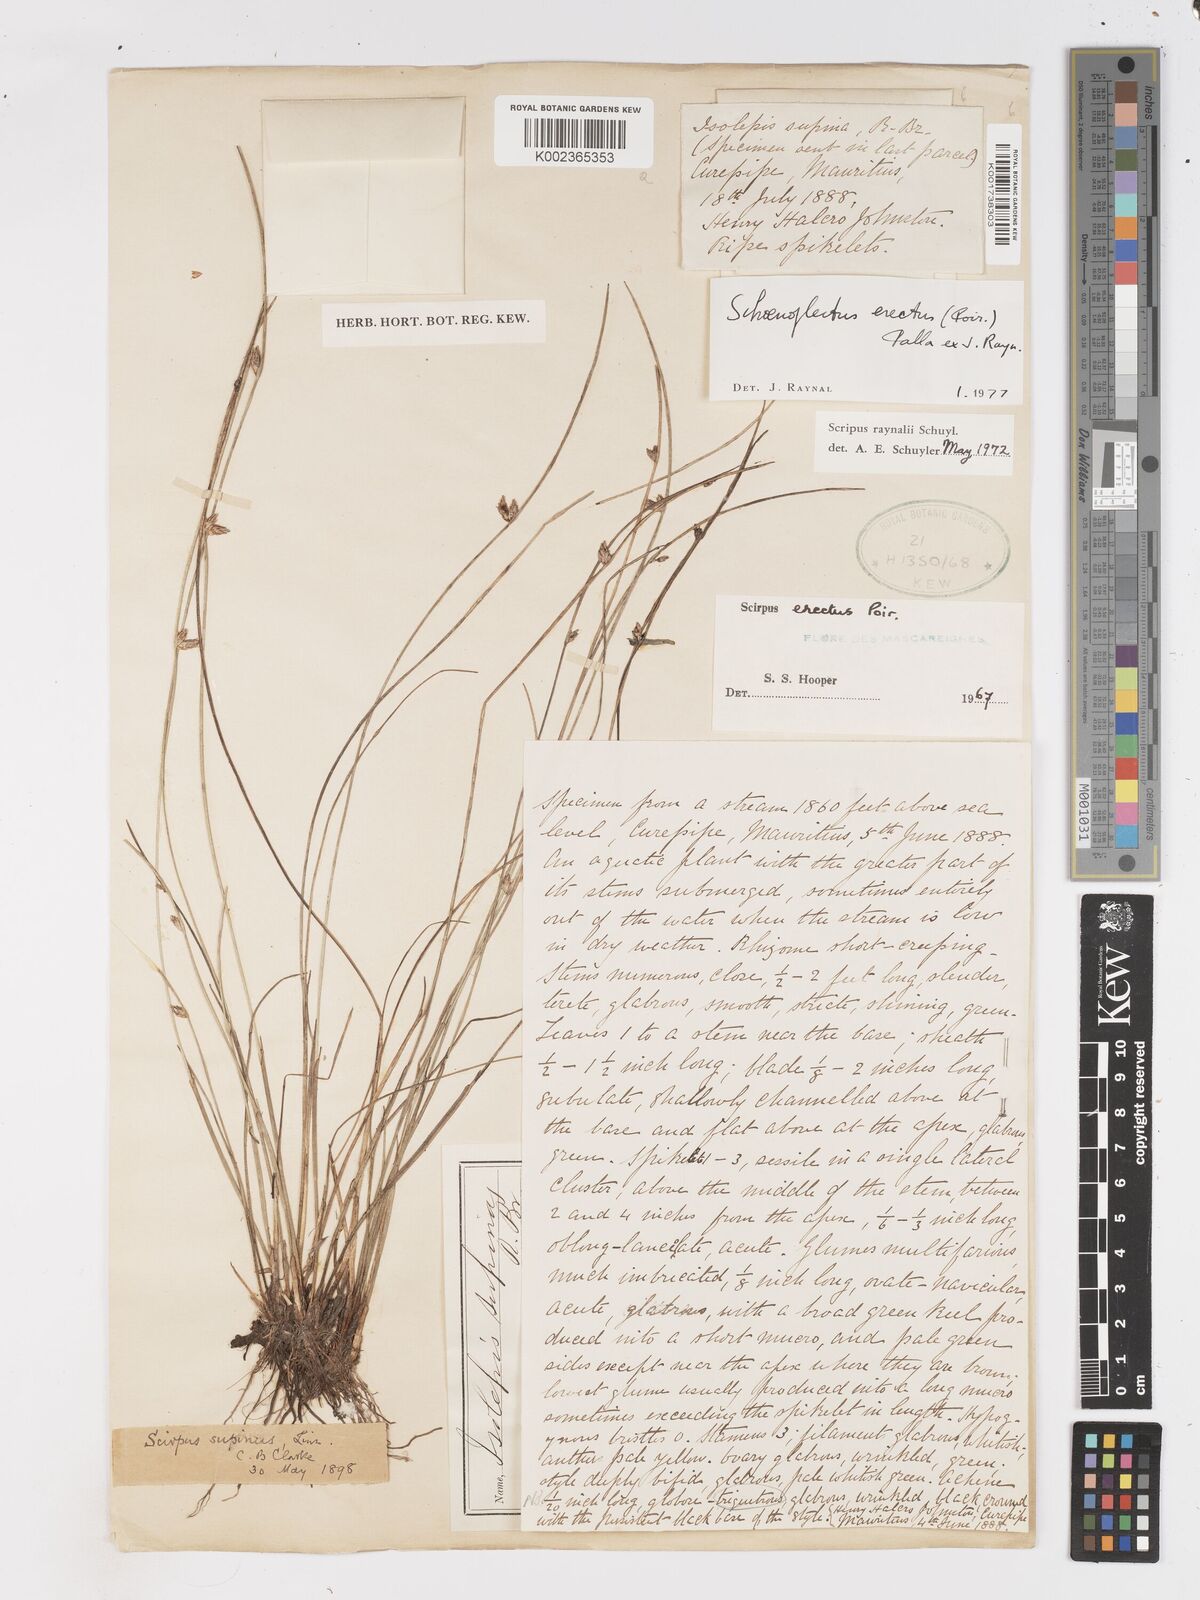 ROYAL BOTANIC GARDENS KEW
K002365353
HERB. HORT. BOT. REG. KEW.
Isolepis supina, R. Br.
(Specimen sent in last parcel)
Curepipe, Mauritius,
18th July 1888,
Henry Halcro Johnston.
Ripe spikelets.
ROYAL BOTANIC GARDENS KEW
K001738303
Schoenoplectus erectus (Poir.)
Palla ex J. Rayn.
DET. J. RAYNAL 1. 1977
Scripus raynalii Schuyl.
det. A. E. Schuyler May 1972
ROYAL BOTANIC GARDENS
21
H 1350/68
KEW
Scirpus erectus Poir.
FLORE DES MASCAREIGNES
S. S. Hooper
DET. 1967
Specimen from a stream 1860 feet above sea
level, Curepipe, Mauritius, 5th June 1888.
An aquatic plant with the greater part of
its stems submerged, sometimes entirely
out of the water when the stream is low
in dry weather. Rhizome short-creeping.
Stems numerous, close, ½ - 2 feet long, slender,
terete, glabrous, smooth, stricte, shining, green.
Leaves 1 to a stem near the base; sheath
½ - 1½ inch long; blade ⅛ - 2 inches long,
subulate, shallowly channelled above at
the base and flat above at the apex, glabrous,
green. Spikelets 1 - 3, sessile in a single lateral
cluster, above the middle of the stem, between
2 and 4 inches from the apex, ⅙ - ⅓ inch long,
oblong-lanceolate, acute. Glumes multifarious,
much imbricated, ⅛ inch long, ovate-navicular,
acute, glabrous, with a broad green keel pro-
duced into a short mucro, and pale green
sides except near the apex where they are brown;
lowest glume usually produced into a long mucro
sometimes exceeding the spikelet in length. Hypog-
ynous bristles 0. Stamens 3; filament glabrous, whitish;
anther pale yellow. Ovary glabrous, wrinkled, green.
Style deeply bifid, glabrous, pale whitish green. Achene
1/20 inch long, globose-trigonous, glabrous, wrinkled, black, crowned
with the persistent black base of the style. (Henry Halcro Johnston, Curepipe
Mauritius 4th June 1888.
Name, Isolepis supina,
R. Br.
Scirpus supinus Linn.
C. B Clarke
30 May 1898
inches
cm
DSG Illuminant, 2 degree observer
Don Williams
M001031
Royal Botanic Gardens
Kew
copyright reserved
0 1 2 3 4 5 6 7 8 9 10
cm